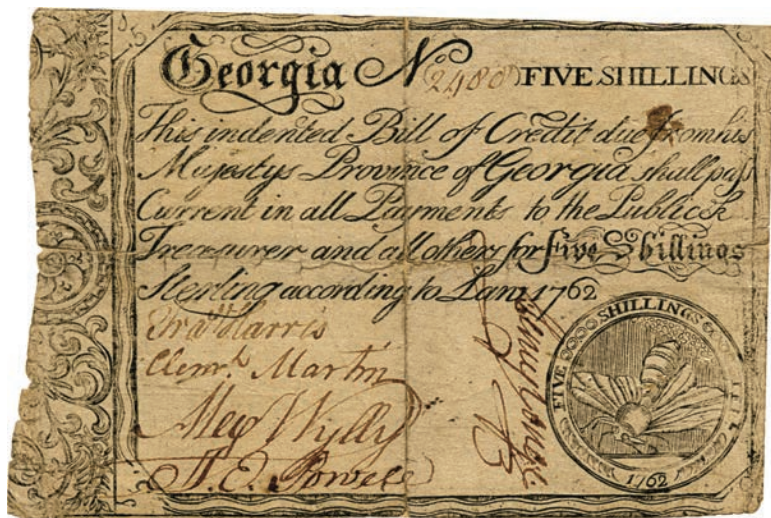 Georgia No 2480 FIVE SHILLINGS
This indented Bill of Credit due from his
Majestys Province of Georgia shall pass
Current in all Payments to the Publick
Treasurer and all others for five Shillings
Sterling according to Law 1762
Fras Harris
Clemt. Martin
Alex Wylly
J. E. Powell
Henry Yonge
FIVE SHILLINGS
1762